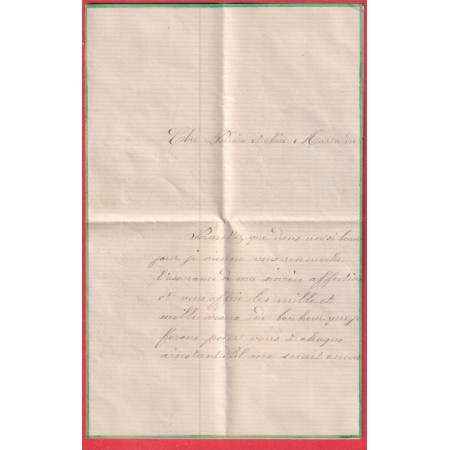 Cher Parrain et chère Marraine
Permettez que dans un si beau
jour je vienne vous renouveler
l'assurance de ma sincère affection
et vous offrir les mille et
mille vœux de bonheur que je
forme pour vous à chaque
instant